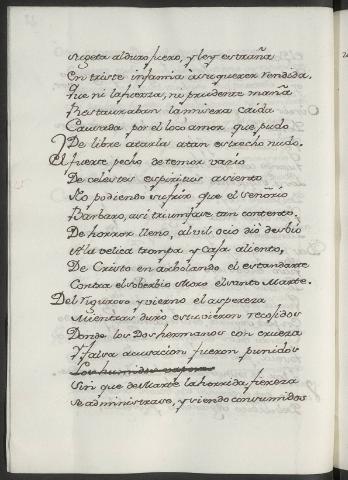 sugeta al duro fuero, y ley estraña
En triste infamia à su querer rendida.
Que ni la fuerza, ni prudente maña
Restauraban la misera caida
Causada por el loco amor que pudo
De libre atarla a tan estrecho nudo.
El fuerte pecho de temor vario
De celestes espiritus asiento
No podiendo sufrir que el señorio
Barbaro, asi triunfase tan contento.
De horror lleno, al vil ocio diò desvio
A la velica trompa y Caja aliento,
De Cristo en arbolando el estandarte
Contra el soberbio Moro el santo Marte.
Del riguroso yvierno el aspereza
Mientras duró estuvieron recojidos
Donde los Dos hermanos con crueza
Y falsa acusacion fueron punidos
Los humidos vapores
Sin que de Marte la horrida fiereza
se administrase, y viendo consumidos